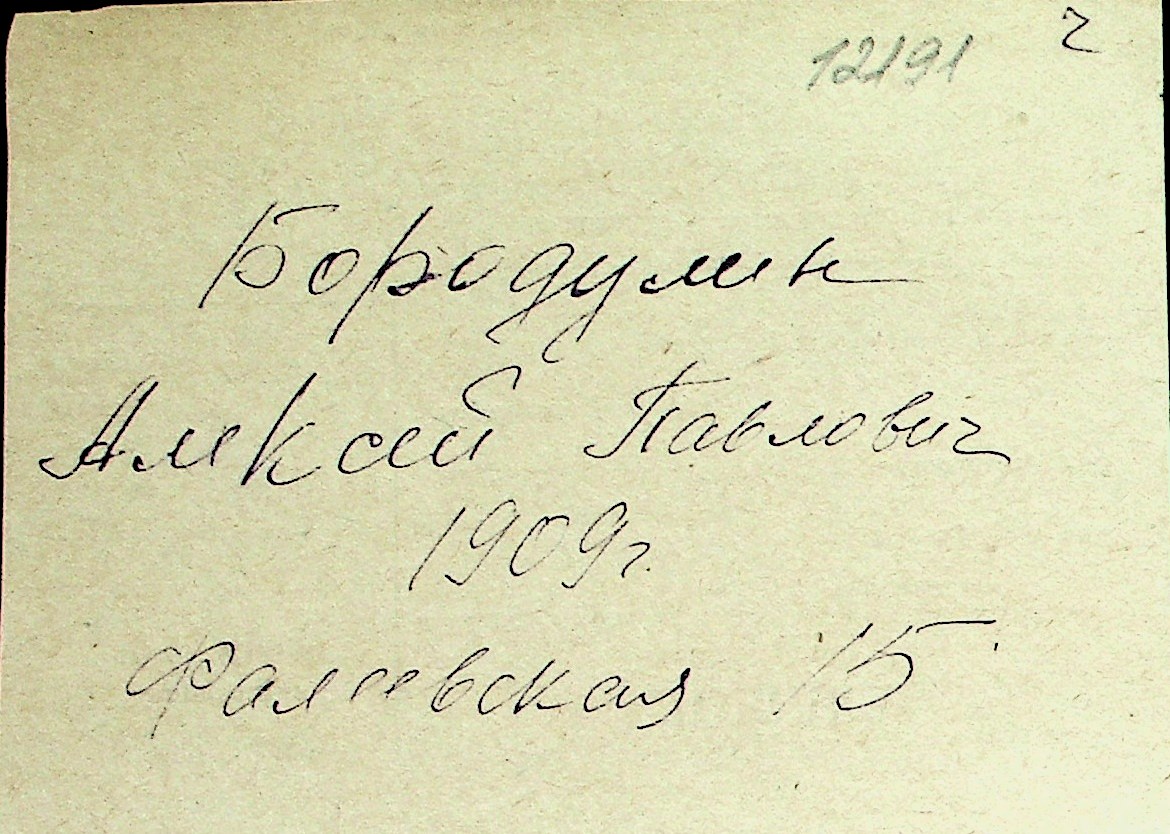 12191 2
Бородулин
Алексей Павлович
1909г.
Фалеевская 15